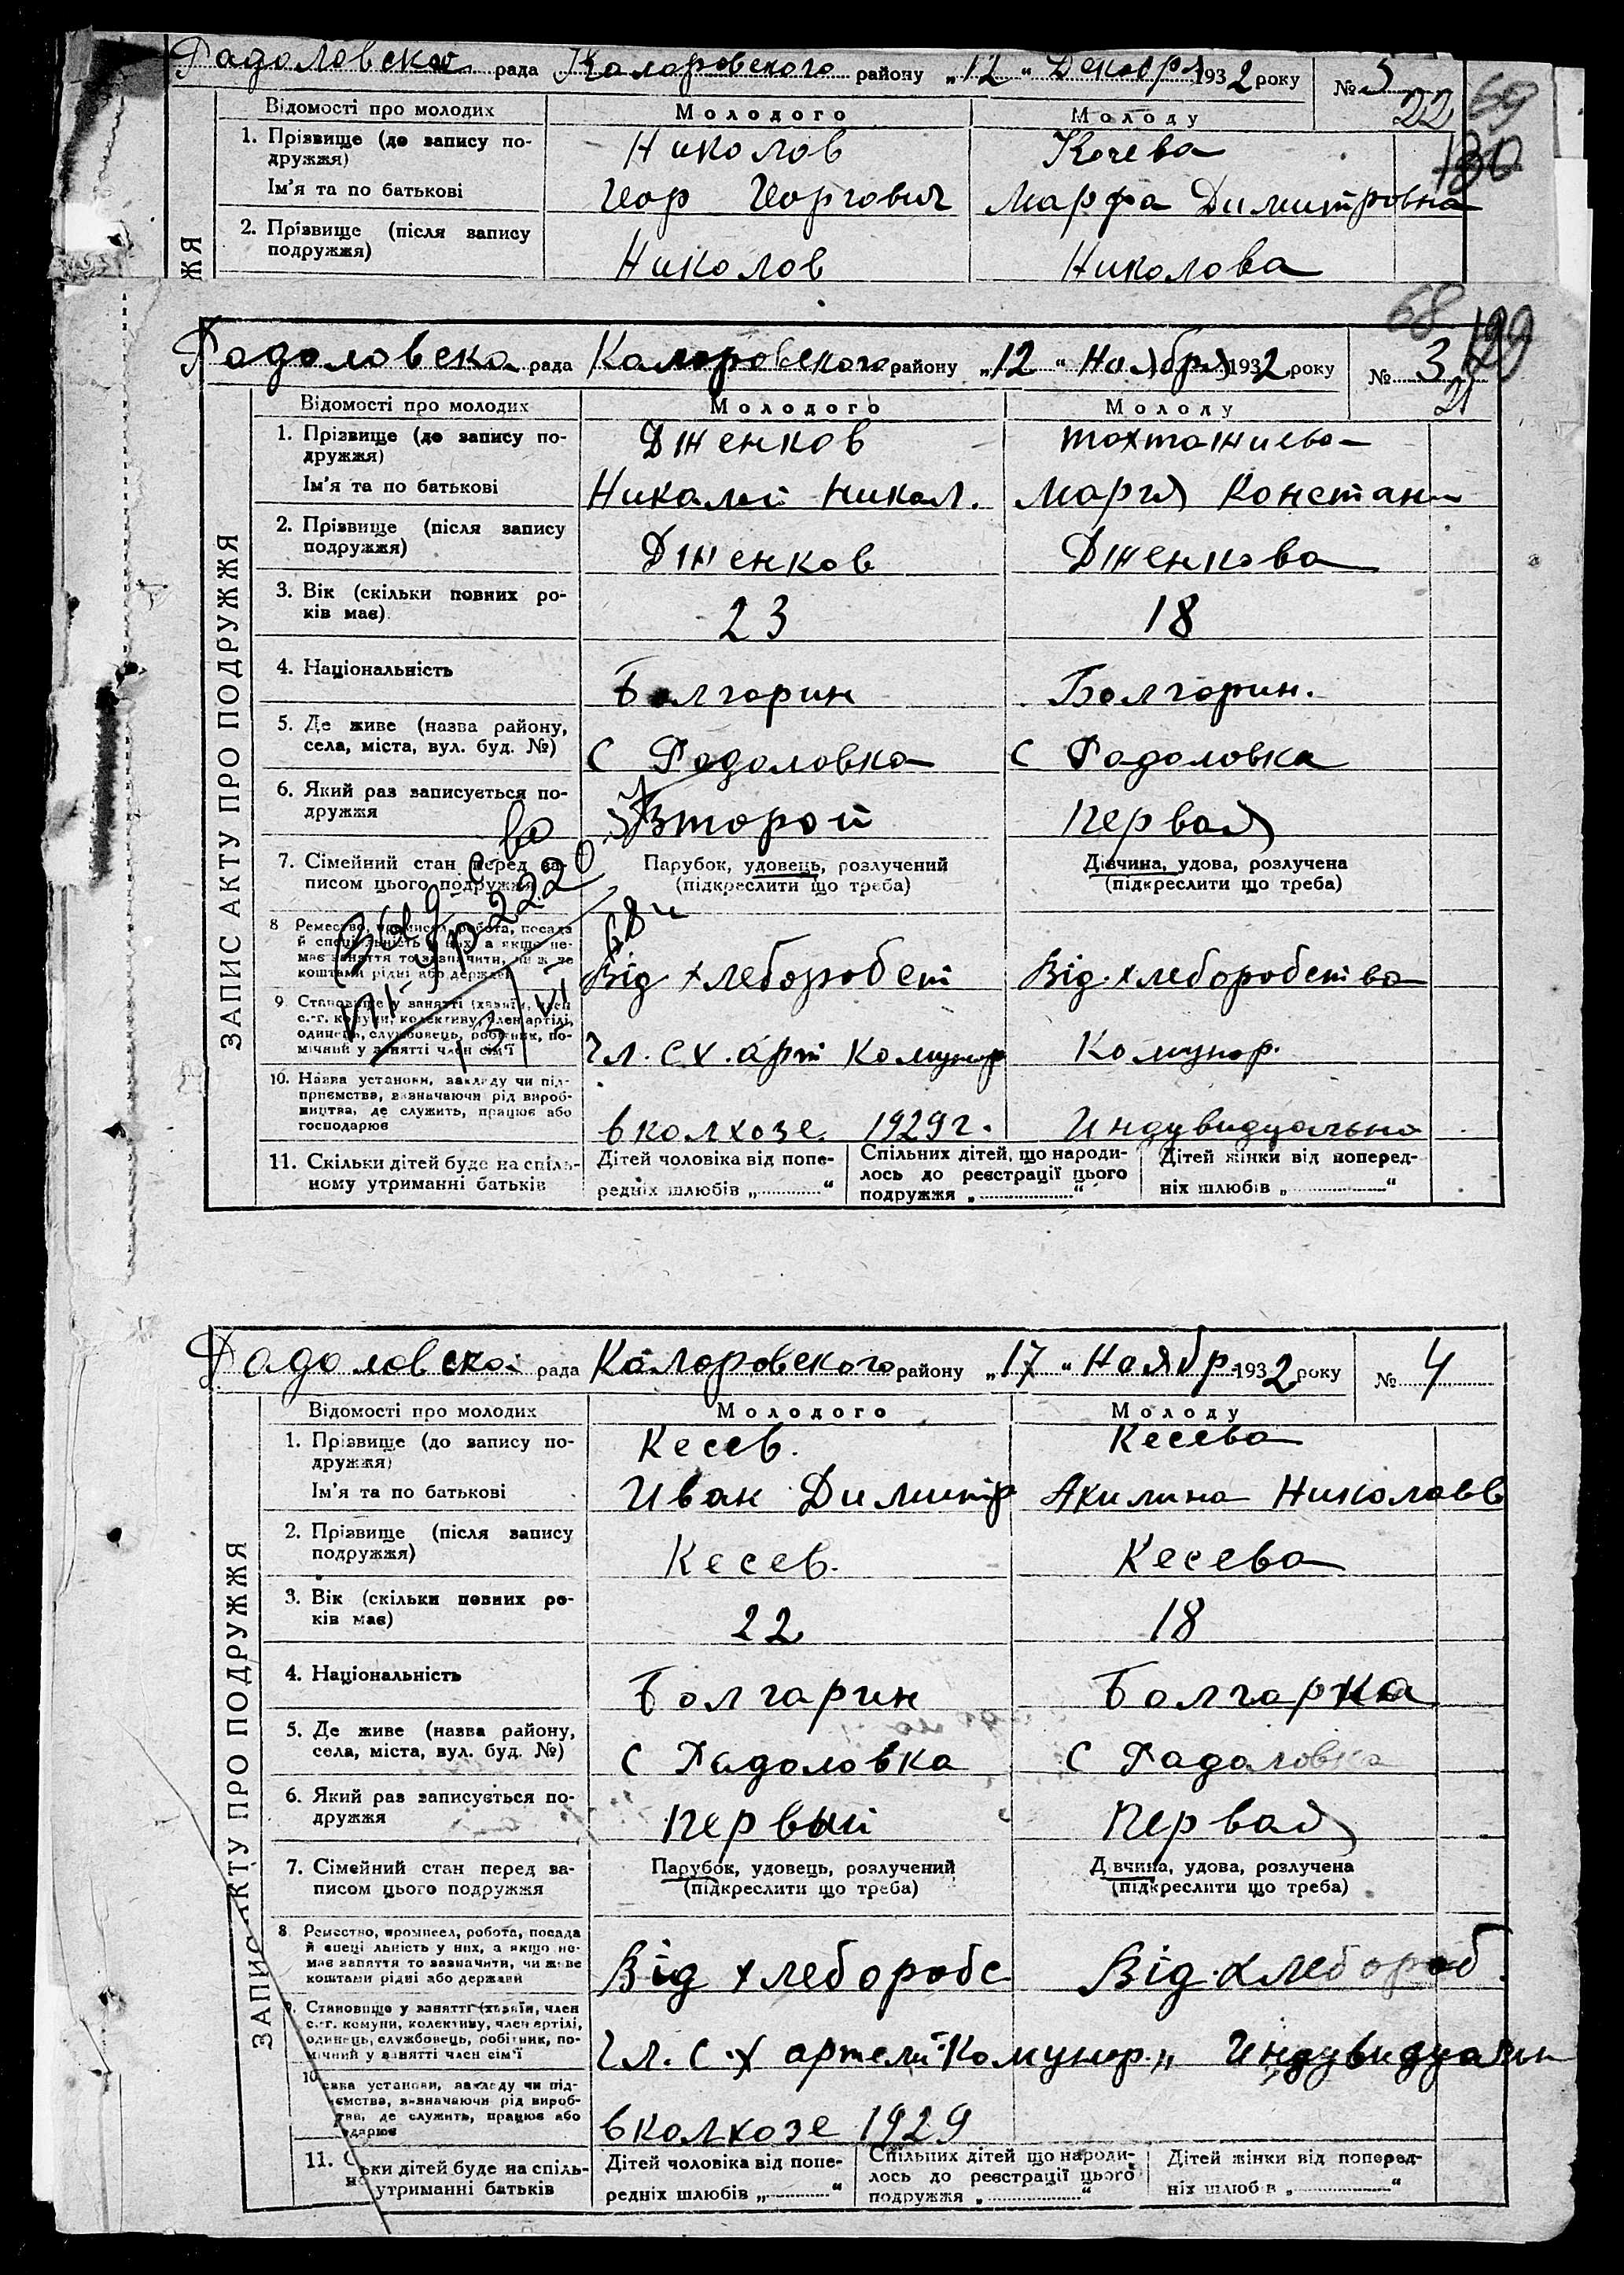 Радоловска рада Коларовского району „12“ Декабря 1932 року № 5
22
69
130
Відомості про молодих Молодого Молоду
1. Прізвище (до запису по-дружжя) Николов Кочева
Ім’я та по батькові Иор Иоргович Марфа Димитровна
2. Прізвище (після запису подружжя) Николов Николова
ЖЯ
68
129
Радоловска рада Коларовского району „12“ Ноября 1932 року № 3
21
ЗАПИС АКТУ ПРО ПОДРУЖЖЯ
Відомості про молодих Молодого Молоду
1. Прізвище (до запису по-
дружжя) Дженков Тохтажиева
Ім’я та по батькові Николай Никол. Мария Констан
2. Прізвище (після запису
подружжя) Дженков Дженкова
3. Вік (скільки повних ро-
ків має) 23 18
4. Національність Болгарин Болгарин.
5. Де живе (назва району,
села, міста, вул. буд. №) С Радоловка С Радоловка
6. Який раз записується по-
дружжя Второй Первая
7. Сімейний стан перед за-
писом цього подружжя Парубок, удовець, розлучений Дівчина, удова, розлучена
(підкреслити що треба) (підкреслити що треба)
8 Ремество, промисел, робота, посада
й спеціяльність у них, а якщо не-
має заняття то зазначити, чи живе
коштами рідні або держави Від хлеборобст Від. хлеборобства
9 Становище у занятті (хазяїн, член
с.-г. комуни, колективу, член артілі,
одинець, службовець, робітник, по-
мічний у занятті член сім’ї Чл. с х. арт Комунар Комунар.
10. Назва установи, закладу чи під-
приємства, визначаючи рід вироб-
ництва, де служить, працює або
господарює в колхозе. 1929 г. Индувидуально
11. Скільки дітей буде на спіль-
ному утриманні батьків Дітей чоловіка від попе-
редніх шлюбів „ “ Спільних дітей, що народи-
лось до реєстрації цього
подружжя „ “ Дітей жінки від поперед-
ніх шлюбів „ “
Радоловска рада Коларовского району „17“ Ноябр 1932 року № 4
ЗАПИС АКТУ ПРО ПОДРУЖЖЯ
Відомості про молодих Молодого Молоду
1. Прізвище (до запису по-
дружжя) Кесев. Кесева
Ім’я та по батькові Иван Димитр Акилина Николаев
2. Прізвище (після запису
подружжя) Кесев. Кесева
3. Вік (скільки повних ро-
ків має) 22 18
4. Національність Болгарин Болгарка
5. Де живе (назва району,
села, міста, вул. буд. №) С Радоловка С Радоловка
6. Який раз записується по-
дружжя Первый Первая
7. Сімейний стан перед за-
писом цього подружжя Парубок, удовець, розлучений Дівчина, удова, розлучена
(підкреслити що треба) (підкреслити що треба)
8 Ремество, промисел, робота, посада
й спеціяльність у них, а якщо не-
має заняття то зазначити, чи живе
коштами рідні або держави Від хлеборобс Від. хлебороб.
9. Становище у занятті (хазяїн, член
с.-г. комуни, колективу, член артілі,
одинець, службовець, робітник, по-
мічний у занятті член сім’ї Чл. с. х артели „Комунар.„ Индувидуальн
10 установи, закладу чи під-
визначаючи рід вироб-
де служить, працює або
в колхозе 1929
11. дітей буде на спіль-
утриманні батьків Дітей чоловіка від попе-
редніх шлюбів „ “ Спільних дітей що народи-
лось до реєстрації цього
подружжя „ “ Дітей жінки від поперед-
ніх шлюбів „ “